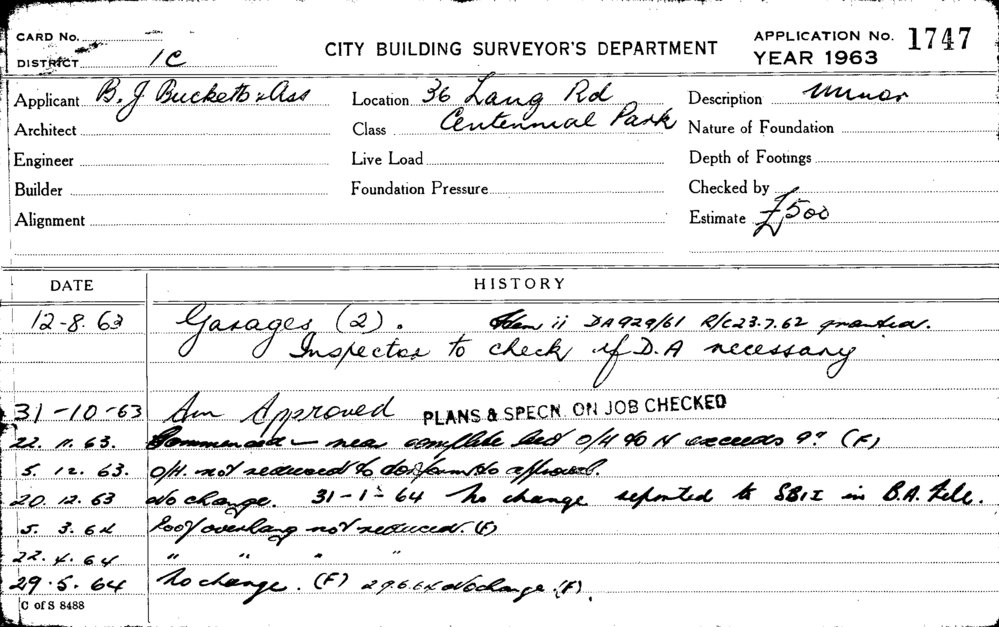 CARD No.
DISTRICT 1C
CITY BUILDING SURVEYOR'S DEPARTMENT
APPLICATION No. 1747
YEAR 1963
Applicant B. J Bucketts & Ass
Location 36 Lang Rd
Description Minor
Architect
Class Centennial Park
Nature of Foundation
Engineer
Live Load
Depth of Footings
Builder
Foundation Pressure
Checked by
Alignment
Estimate £500
DATE HISTORY
12-8. 63 Garages (2). Item ii DA929/61 R/C23.7.62 granted.
Inspector to check if D.A necessary
31-10-63 Am Approved PLANS & SPECN. ON JOB CHECKED
22. 11. 63. Commenced — near complete but O/H to N exceeds 9" (F)
5. 12. 63. O/H. not reduced to conform to approval.
20. 12. 63 No change. 31-1-64 No change reported to SBII in B.A. File.
5. 3. 64 Roof overhang not reduced. (F)
22. 4. 64 " " " "
29. 5. 64 No change. (F) 29.6.64 No change. (F).
C of S 8488